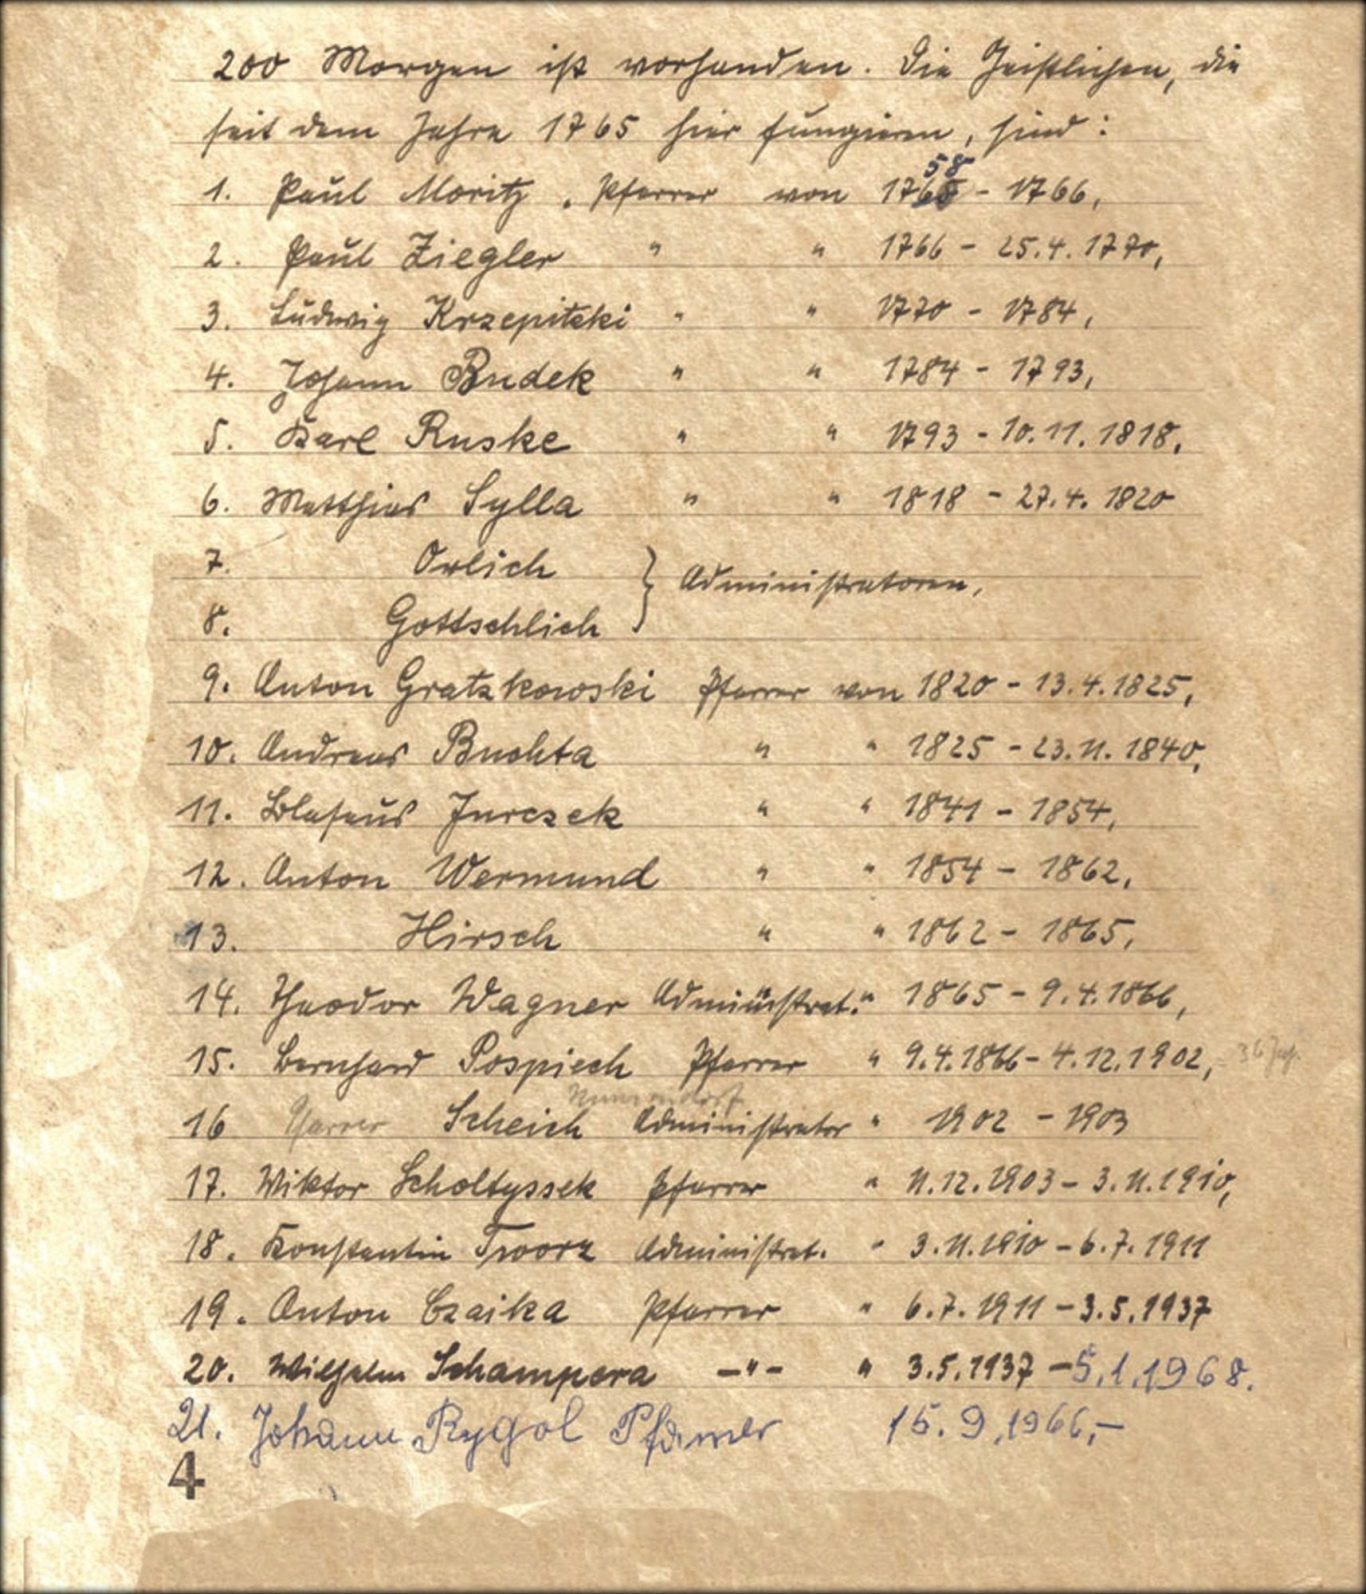 200 Morgen ist vorhanden. Die Geistlichen, die
seit dem Jahre 1765 hier fungieren, sind:
58
1. Paul Moritz, Pfarrer von 1765 - 1766,
2. Paul Ziegler " " 1766 - 25.4.1770,
3. Ludwig Krzepitzki " " 1770 - 1784,
4. Johann Budek " " 1784 - 1793,
5. Karl Ruske " " 1793 - 10.11.1818,
6. Matthias Sylla " " 1818 - 27.4.1820
7. Orlich } Administratoren,
8. Gottschlich
9. Anton Gratzkowski Pfarrer von 1820 - 13.4.1825,
10. Andreas Buchta " " 1825 - 23.11.1840,
11. Blasius Jurczek " " 1841 - 1854,
12. Anton Wermund " " 1854 - 1862,
13. Hirsch " " 1862 - 1865,
14. Theodor Wagner Administrat. " 1865 - 9.4.1866,
15. Bernhard Pospiech Pfarrer " 9.4.1866 - 4.12.1902,
16 Pfarrer Scheich Administrator " 1902 - 1903
17. Wiktor Scholtyssek Pfarrer " 11.12.1903 - 3.11.1910,
18. Konstantin Tworz Administrat. " 3.11.1910 - 6.7.1911
19. Anton Czaika Pfarrer " 6.7.1911 - 3.5.1937
20. Wilhelm Schampera -"- " 3.5.1937 - 5.1.1968.
21. Johann Rygol Pfarrer 15.9.1966,-
4